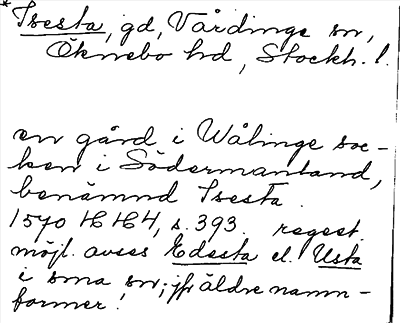 * Isesta, gd, Vårdinge sn,
Öknebo hd, Stockh. l.
en gård i Wålinge soc-
ken i Södermanland,
benämnd Isesta.
1570 HH4, s. 393. regest.
möjl. avses Edesta el. Usta
i sma sn; jfr äldre namn-
former!